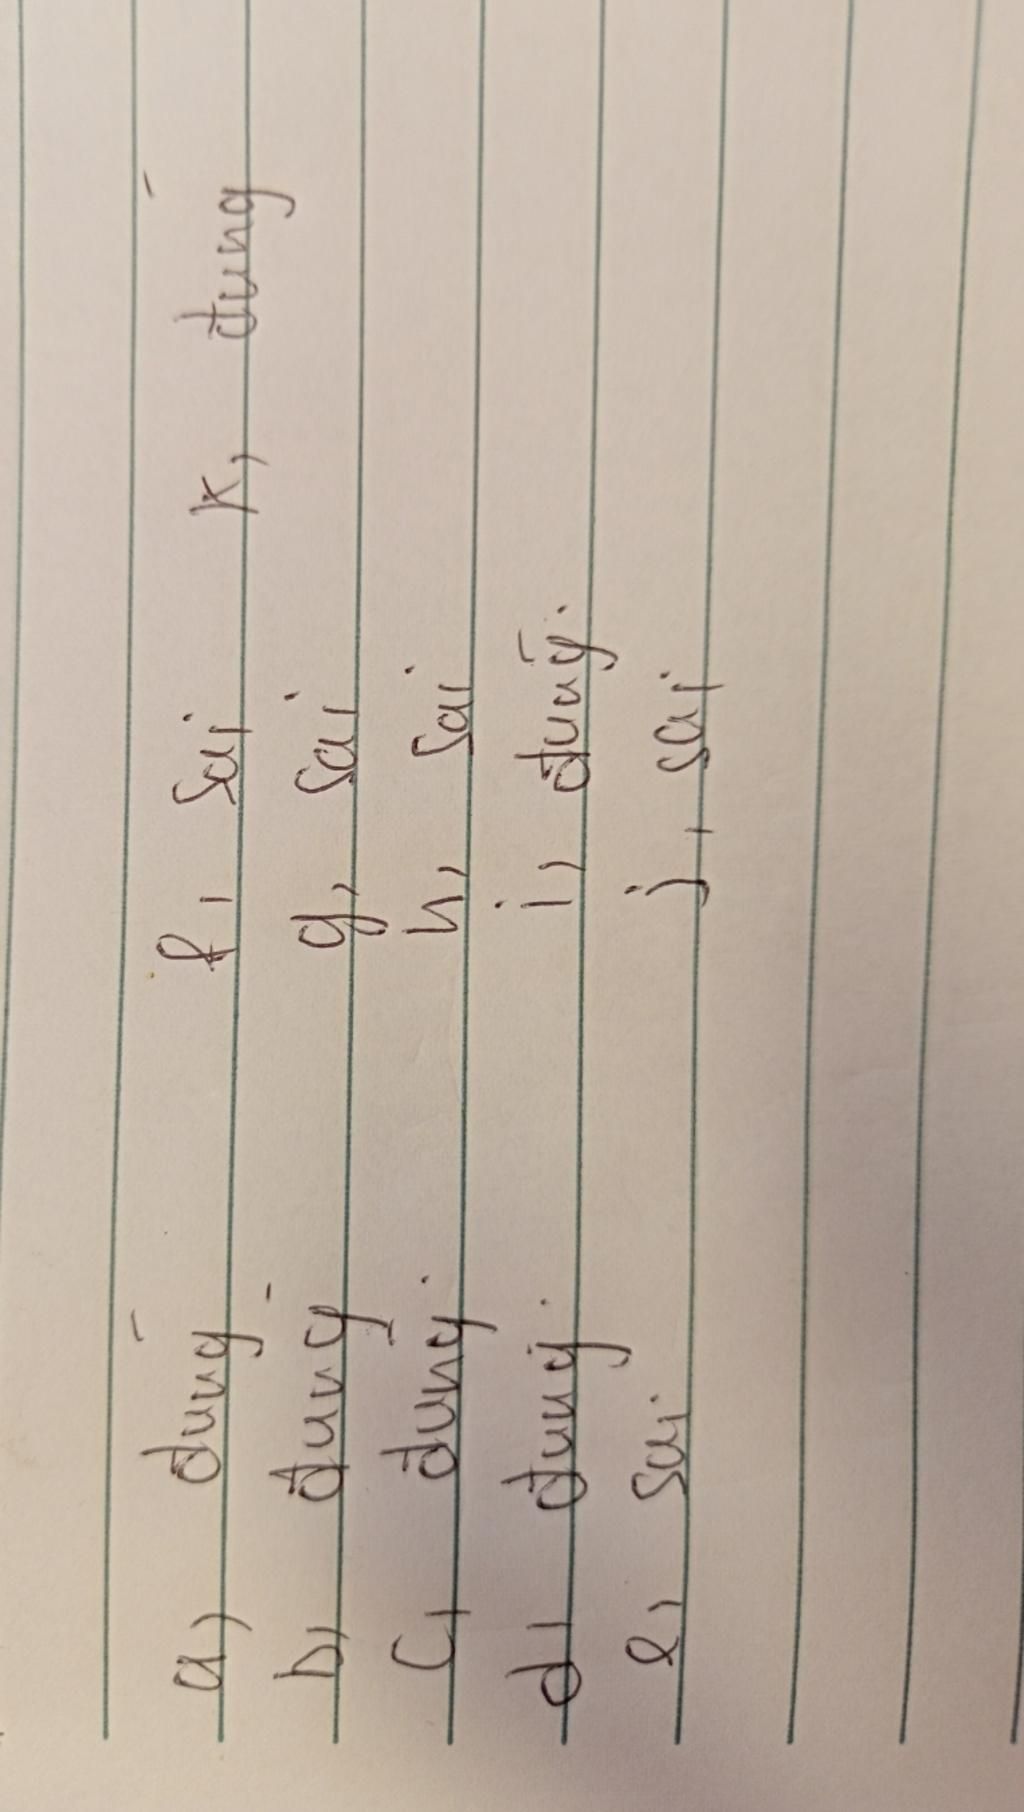 a, đúng f, sai k, đúng
b, đúng g, sai
c, đúng h, sai
d, đúng i, đúng.
e, sai j, sai